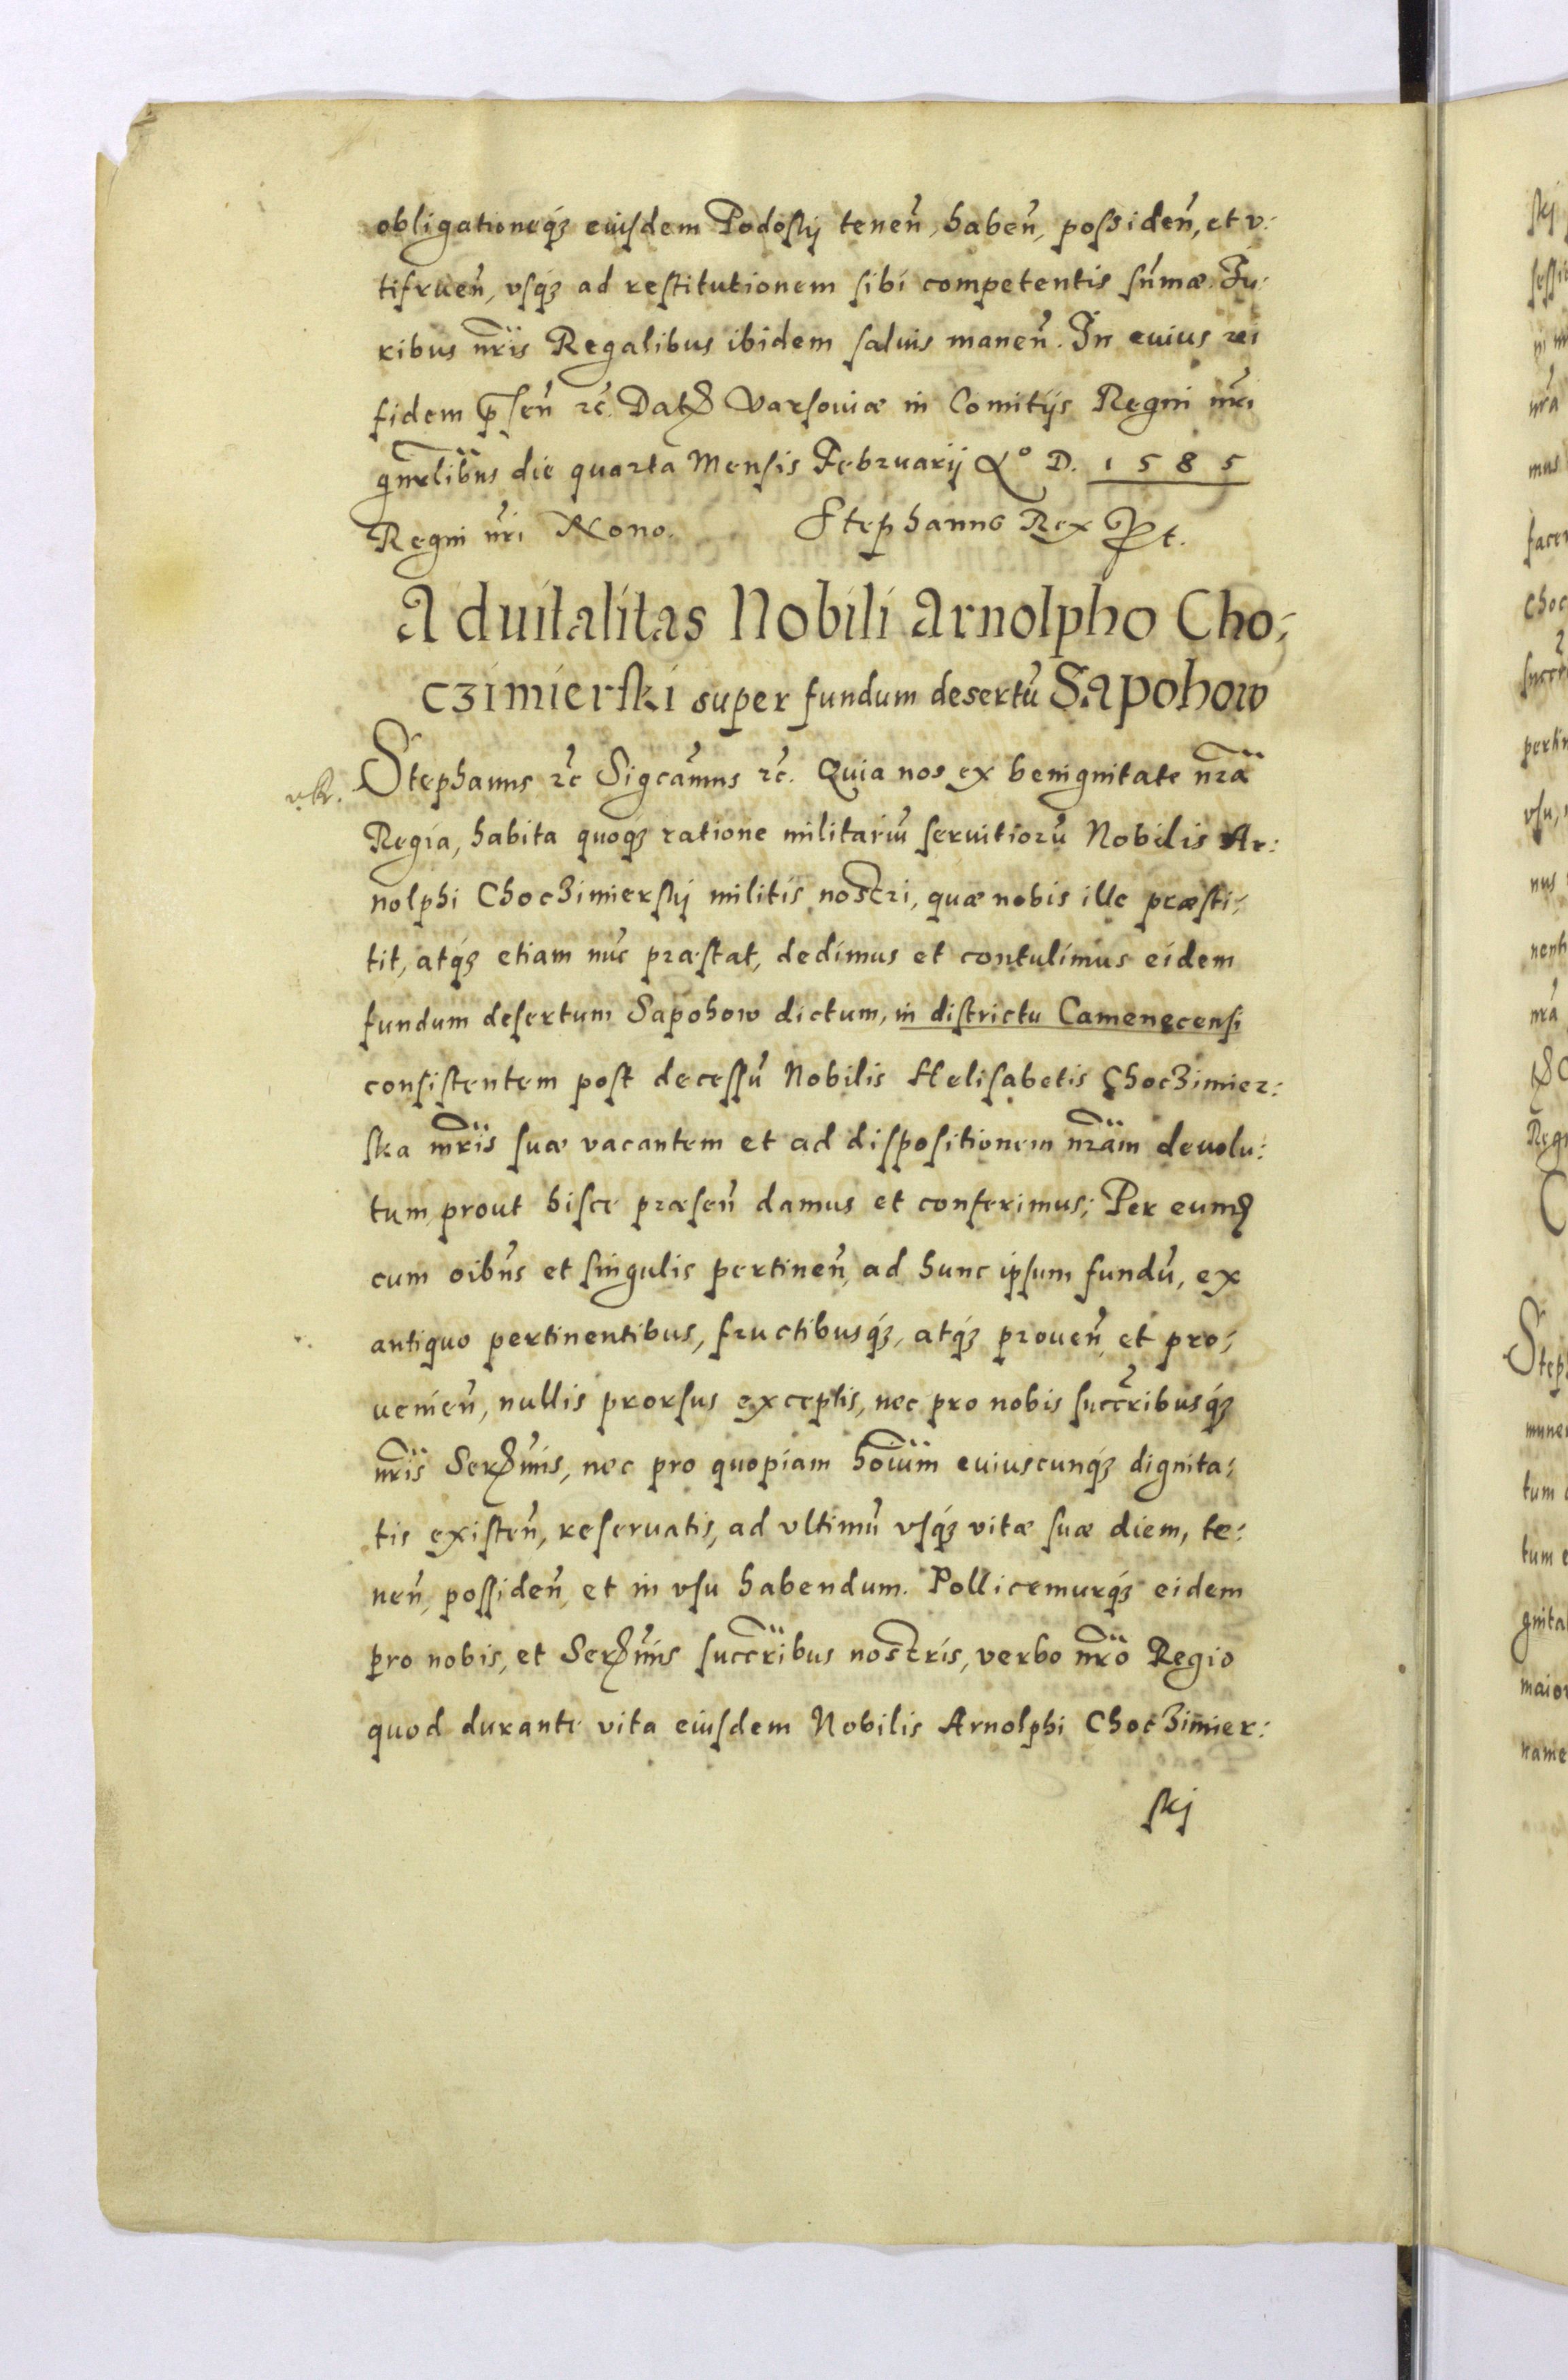 obligationeq́ꝫ eiusdem Podoskij tenen̄, haben̄, possiden̄, et v:
tifruen̄, vsq́ꝫ ad restitutionem sibi competentis sūmæ. Iu:
ribus nr̄is Regalibus ibidem saluis manen̄. In cuius rei
fidem p̄sen̄ ꝛc̄. Datꝫ Varsoviæ in Comitijs Regni nr̄i
gnr̄libus die quarta Mensis Februarij Aº D. 1585
Regni nr̄i Nono. Stephanus Rex Pt.
Aduitalitas Nobili Arnolpho Cho:
czimierski super fundum desertū Sapohow
Stephanus ꝛc̄ Sigcāmus ꝛc̄. Quia nos ex benignitate nr̄a
Regia, habita quoq́ꝫ ratione militariū seruitiorū Nobilis Ar:
nolphi Choczimierskij militis nostri, quæ nobis ille præsti:
tit, atq́ꝫ etiam nūc præstat, dedimus et contulimus eidem
fundum desertum Sapohow dictum, in districtu Camenecensi
consistentem post decessū Nobilis Helisabetis Choczimier:
ska mr̄is suæ vacantem et ad dispositionem nr̄am deuolu:
tum, prout hisce præsen̄ damus et conferimus; Per eumd
cum oibūs et singulis pertinen̄, ad hunc ipsum fundū, ex
antiquo pertinentibus, fructibusq́ꝫ, atq́ꝫ prouen̄, et pro:
uenien̄, nullis prorsus exceptis, nec pro nobis succr̄ibusq́ꝫ
nr̄is Serꝫmis, nec pro quopiam hoīum cuiuscunq́ꝫ dignita:
tis existen̄, reseruatis, ad vltimū vsq́ꝫ vitæ suæ diem, te:
nen̄, possiden̄, et in vsu habendum. Pollicemurq́ꝫ eidem
pro nobis, et Serꝫmis succr̄ibus nostris, verbo nr̄o Regio
quod durante vita eiusdem Nobilis Arnolphi Choczimier:
skj